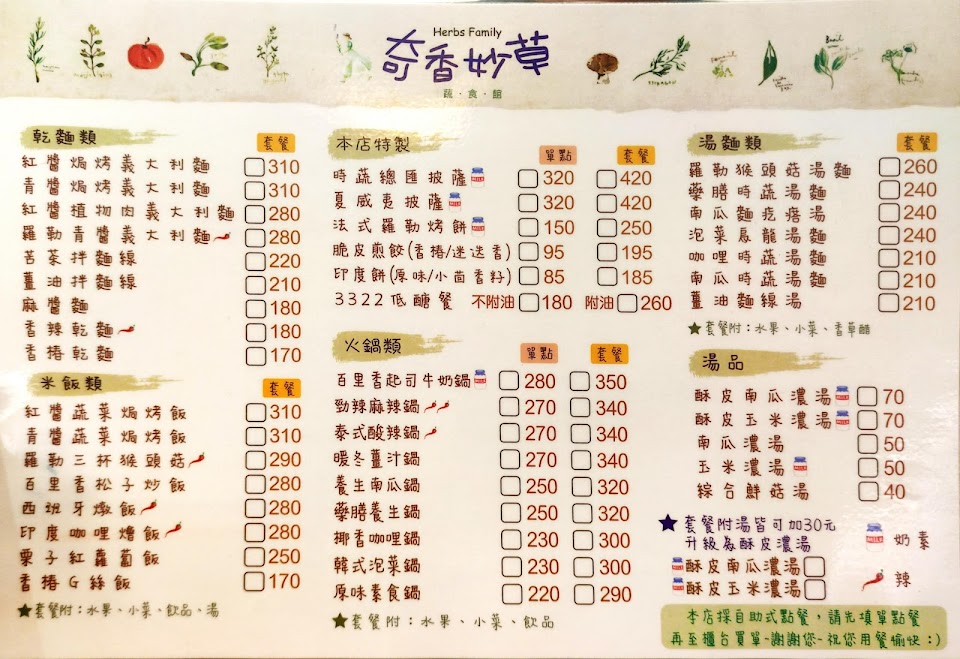 Herbs Family
奇香妙草
蔬・食・館
乾麵類 套餐
紅醬焗烤義大利麵 310
青醬焗烤義大利麵 310
紅醬植物肉義大利麵 280
羅勒青醬義大利麵 280
苦茶拌麵線 220
薑油拌麵線 210
麻醬麵 180
香辣乾麵 180
香椿乾麵 170
米飯類 套餐
紅醬蔬菜焗烤飯 310
青醬蔬菜焗烤飯 310
羅勒三杯猴頭菇 290
百里香松子炒飯 280
西班牙燉飯 280
印度咖哩燴飯 280
栗子紅蘿蔔飯 250
香椿G絲飯 170
★套餐附：水果、小菜、飲品、湯
本店特製 單點 套餐
時蔬總匯披薩 MILK 320 420
夏威夷披薩 MILK 320 420
法式羅勒烤餅 MILK 150 250
脆皮煎餃(香椿/迷迭香) 95 195
印度餅(原味/小茴香籽) 85 185
3322低醣餐 不附油 180 附油 260
火鍋類 單點 套餐
百里香起司牛奶鍋 MILK 280 350
勁辣麻辣鍋 270 340
泰式酸辣鍋 270 340
暖冬薑汁鍋 270 340
養生南瓜鍋 250 320
藥膳養生鍋 250 320
椰香咖哩鍋 230 300
韓式泡菜鍋 230 300
原味素食鍋 220 290
★套餐附：水果、小菜、飲品
湯麵類 套餐
羅勒猴頭菇湯麵 260
藥膳時蔬湯麵 240
南瓜麵疙瘩湯 240
泡菜烏龍湯麵 240
咖哩時蔬湯麵 210
南瓜時蔬湯麵 210
薑油麵線湯 210
★套餐附：水果、小菜、香草醋
湯品
酥皮南瓜濃湯 MILK 70
酥皮玉米濃湯 MILK 70
南瓜濃湯 50
玉米濃湯 MILK 50
綜合鮮菇湯 40
★套餐附湯皆可加30元
升級為酥皮濃湯
MILK 酥皮南瓜濃湯
MILK 酥皮玉米濃湯
MILK 奶素
辣
本店採自助式點餐，請先填單點餐
再至櫃台買單~謝謝您~祝您用餐愉快：)